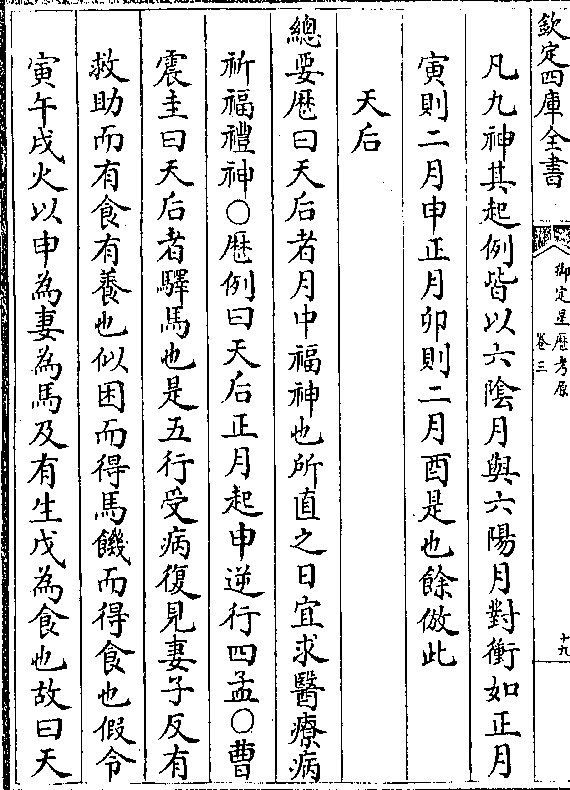 欽定四庫全書
御定星厯考原
卷三
十九
凡九神其起例皆以六陰月與六陽月對衝如正月
寅則二月申正月卯則二月酉是也餘倣此
天后
總要厯曰天后者月中福神也所直之日宜求醫療病
祈福禮神○厯例曰天后正月起申逆行四孟○曹
震圭曰天后者驛馬也是五行受病復見妻子反有
救助而有食有養也似困而得馬饑而得食也假令
寅午戌火以申為妻為馬及有生戊為食也故曰天